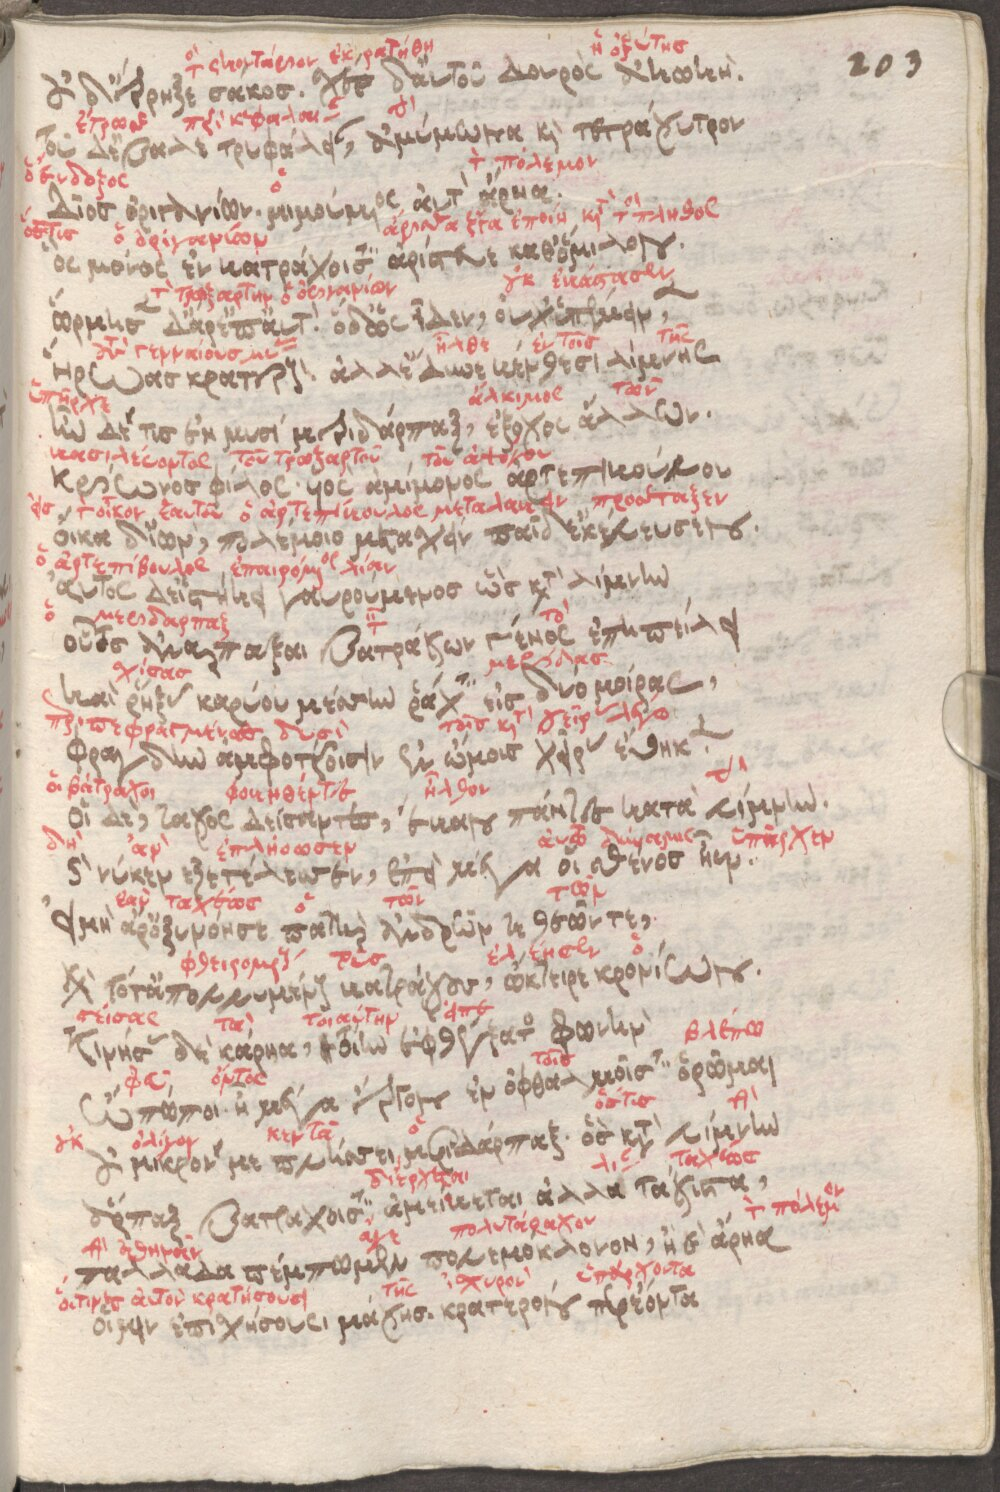 203
τ σκουτάριον ἐκρατήθη ἡ ὀξύτης
οὐ διέρρηξε σάκος. σχέτο δ' αὐτοῦ δουρὸς ἀκωκή.
ἔτρωσε περικεφαλαι
τοῦ δ' ἔβαλε τρυφάλειαν, ἀμύμωνα καὶ τετράχυτρον
ὁ ἔνδοξος ὁ τ πόλεμον
Δῖος ὀριγανίων. μιμούμενος αὐτὸν ἄρηα.
ὅστις ὁ ὀριγανίων ἄριστα ἔργα ἐποίει κατὰ τὸ πλῆθος
ὃς μόνος ἐν βατράχοισιν ἀρίστευε καθ' ὅμιλον.
τ τρωξάρτην ὁ ὀριγανίων οὐκ
ὥρμησεν δ' ἄρ' ἐπ' αὐτόν. ὁ δ' ὡς ἴδεν, οὐχ ὑπέμεινεν,
τοὺς γενναίους ἦλθε ἐν τοῖς τῆς
ἥρωας κρατερούς. ἀλλ' ἔδυνε βένθεσι λίμνης
ὑπῆρχε ἄλκιμος τῶν
ἦν δέ τις ἐν μυσὶ μεριδάρπαξ, ἔξοχος ἄλλων.
βασιλεύοντος τοῦ τρωξάρτου τοῦ
Κρείωνος φίλος υἱὸς ἀμύμονος ἀρτεπιβούλου
εἰς τ οἶκον ἑαυτοῦ ὁ ἀρτεπίβουλος μεταλαβεῖν προσέταξεν
οἴκαδ' ἰών, πολέμοιο μετασχεῖν παῖδ' ἐκέλευσεν.
ὁ ἀρτεπίβουλος ἐπαιρόμενος λίαν
αὐτὸς δ' εἱστήκει γαυρούμενος ὡς κατὰ λίμνην
ὁ μεριδάρπαξ τ τὸ
οὗτος ἀναρπάξαι βατράχων γένος ἐπηπείλει
σχίσας μερίδας
καὶ ῥήξας καρύου μέσσην ῥάχιν εἰς δύο μοίρας,
περιπεφραγμένας δυσὶ ταῖς
φράγδην ἀμφοτέροισιν ἐν ὤμοις χεῖρας ἔθηκεν
οἱ βάτραχοι φοβηθέντες ἦλθον τὴν
οἱ δὲ, τάχος δείσαντες, ἔβαν πάντες κατὰ λίμνην.
δὴ ἂν ἐπλήρωσεν αὐτῷ δύναμις ὑπῆρχεν
καί νύ κεν ἐξετέλεσσεν, ἐπεὶ μέγα οἱ σθένος ἦεν.
ἐὰν ταχέως ὁ τῶν τῶν
εἰ μὴ ἄρ' ὀξὺ νόησε πατὴρ ἀνδρῶν τε θεῶν τε,
φθειρομένους τοὺς ἐλέησεν ὁ
καὶ τότ' ἀπολλυμένους βατράχους, ᾤκτειρε κρονίων.
σείσας τὰ τοιαύτην εἶπε
κινήσας δὲ κάρηνα, τοίην ἐφθέγξατο φωνήν
φεῦ ὄντως τοῖς βλέπω
ὢ πόποι ἦ μέγα ἔργον ἐν ὀφθαλμοῖσιν ὁρῶμαι
οὐκ ὀλίγον ὁ ὅστις τὴν
οὐ μικρόν με πλήσσει μεριδάρπαξ. ὃς κατὰ λίμνην
διέρχεται ταχέως
ἅρπαξ βατράχοισιν ἀμείβεται ἀλλὰ τάχιστα,
τὴν ἀθηνᾶν ἄγε πολυτάραχον τ πόλεμον
παλλάδα πέμπωμεν πολεμόκλονον, ἢ καὶ ἄρηα
οἵτινες αὐτὸν κρατήσουσι τῆς ἰσχυρὸν ὑπάρχοντα
οἵ μιν ἐπισχήσουσι μάχης. κρατερόν περ ἐόντα